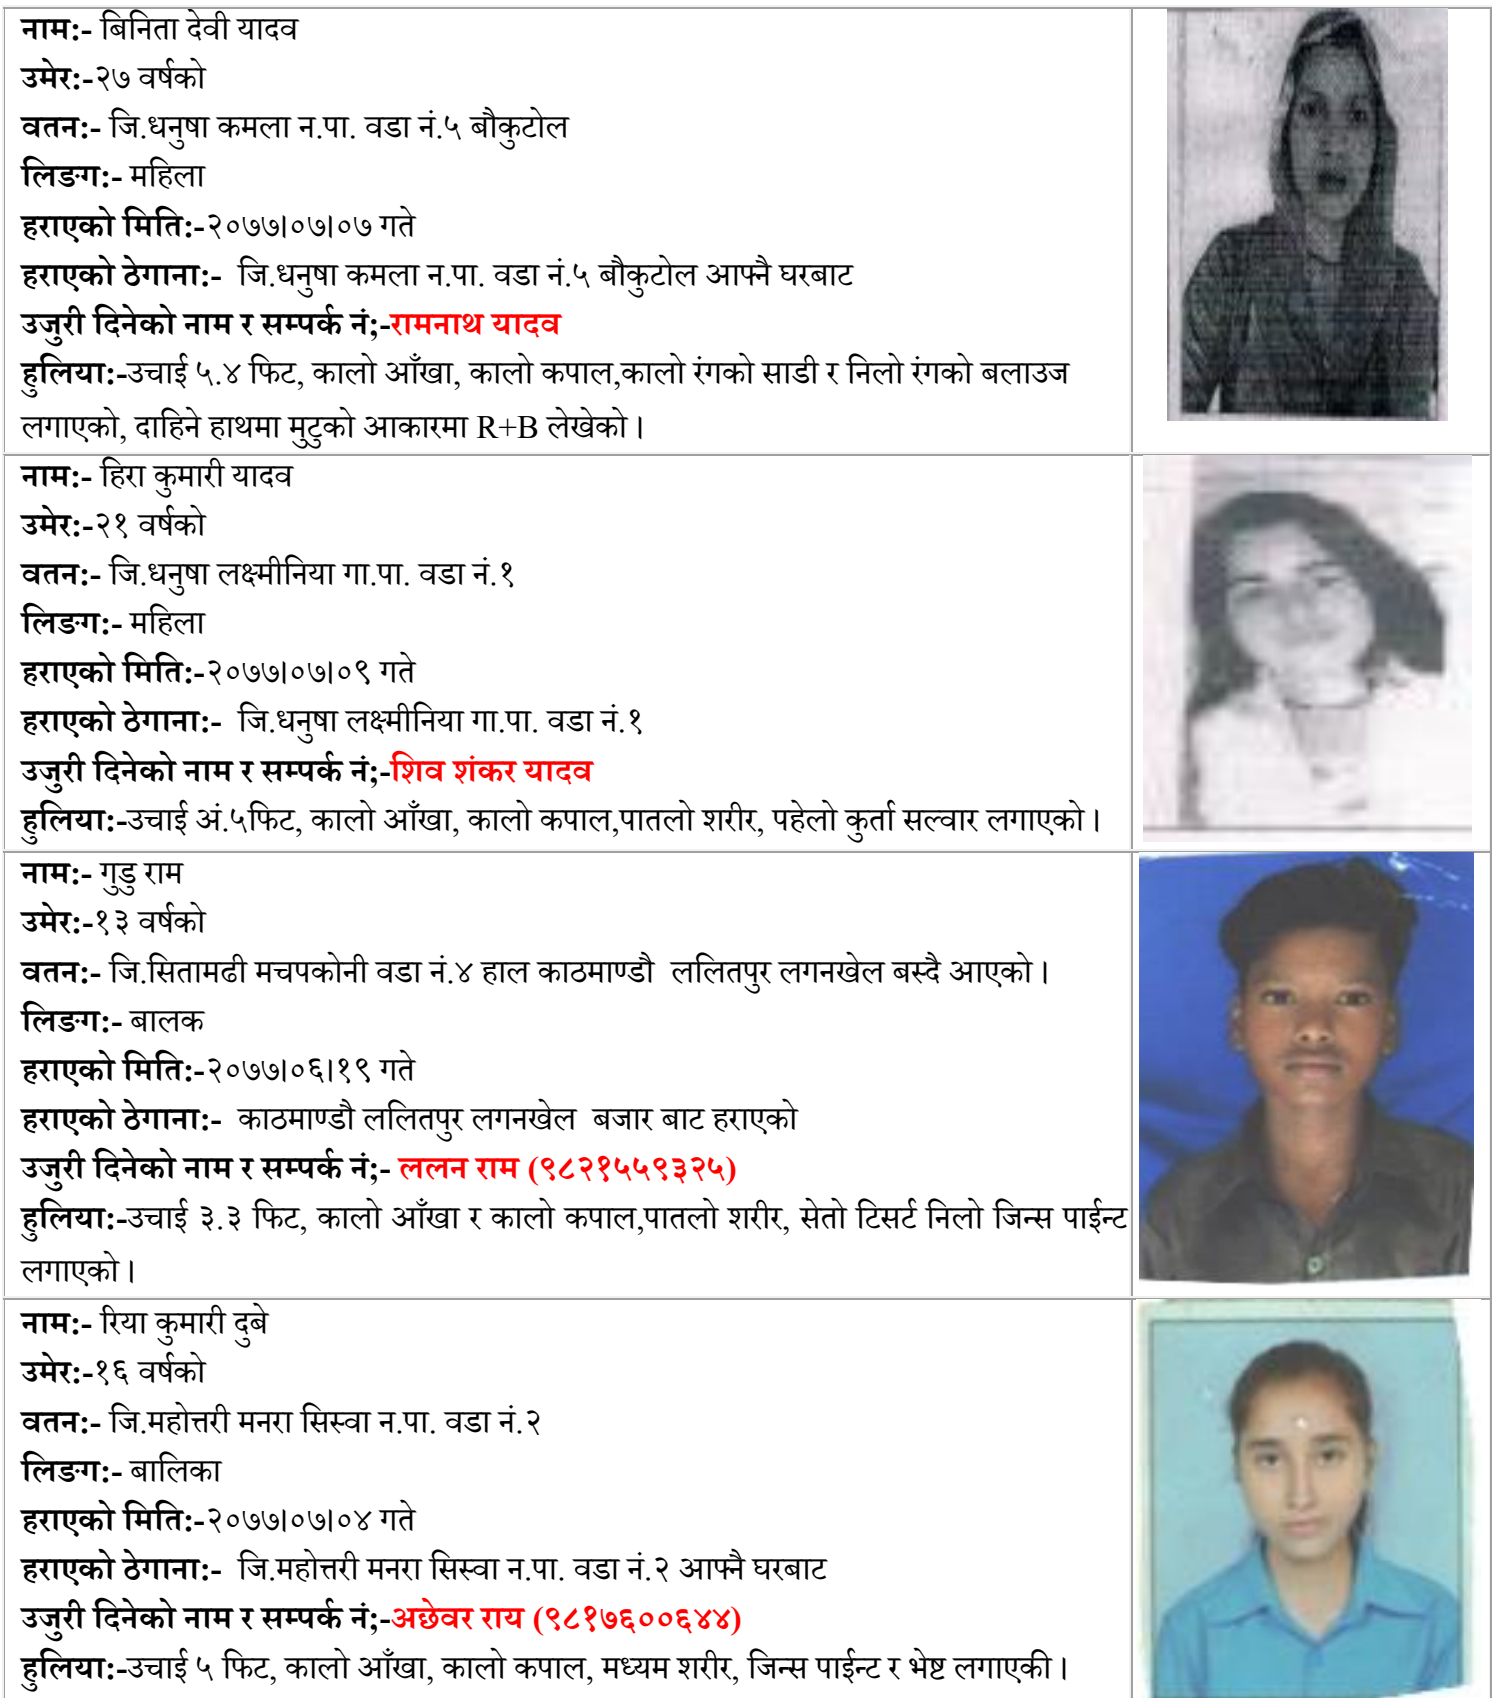 नाम:- बिनिता देवी यादव
उमेर:-२७ वर्षको
वतन:- जि.धनुषा कमला न.पा. वडा नं.५ बौकुटोल
लिङग:- महिला
हराएको मिति:-२०७७।०७।०७ गते
हराएको ठेगाना:- जि.धनुषा कमला न.पा. वडा नं.५ बौकुटोल आफ्नै घरबाट
उजुरी दिनेको नाम र सम्पर्क नं;-रामनाथ यादव
हुलिया:-उचाई ५.४ फिट, कालो आँखा, कालो कपाल,कालो रंगको साडी र निलो रंगको बलाउज
लगाएको, दाहिने हाथमा मुटुको आकारमा R+B लेखेको।
नाम:- हिरा कुमारी यादव
उमेर:-२१ वर्षको
वतन:- जि.धनुषा लक्ष्मीनिया गा.पा. वडा नं.१
लिङग:- महिला
हराएको मिति:-२०७७।०७।०९ गते
हराएको ठेगाना:- जि.धनुषा लक्ष्मीनिया गा.पा. वडा नं.१
उजुरी दिनेको नाम र सम्पर्क नं;-शिव शंकर यादव
हुलिया:-उचाई अं.५फिट, कालो आँखा, कालो कपाल,पातलो शरीर, पहेलो कुर्ता सल्वार लगाएको।
नाम:- गुडु राम
उमेर:-१३ वर्षको
वतन:- जि.सितामढी मचपकोनी वडा नं.४ हाल काठमाण्डौ ललितपुर लगनखेल बस्दै आएको।
लिङग:- बालक
हराएको मिति:-२०७७।०६।१९ गते
हराएको ठेगाना:- काठमाण्डौ ललितपुर लगनखेल बजार बाट हराएको
उजुरी दिनेको नाम र सम्पर्क नं;- ललन राम (९८२१५५९३२५)
हुलिया:-उचाई ३.३ फिट, कालो आँखा र कालो कपाल,पातलो शरीर, सेतो टिसर्ट निलो जिन्स पाईन्ट
लगाएको।
नाम:- रिया कुमारी दुबे
उमेर:-१६ वर्षको
वतन:- जि.महोत्तरी मनरा सिस्वा न.पा. वडा नं.२
लिङग:- बालिका
हराएको मिति:-२०७७।०७।०४ गते
हराएको ठेगाना:- जि.महोत्तरी मनरा सिस्वा न.पा. वडा नं.२ आफ्नै घरबाट
उजुरी दिनेको नाम र सम्पर्क नं;-अछेवर राय (९८१७६००६४४)
हुलिया:-उचाई ५ फिट, कालो आँखा, कालो कपाल, मध्यम शरीर, जिन्स पाईन्ट र भेष्ट लगाएकी।